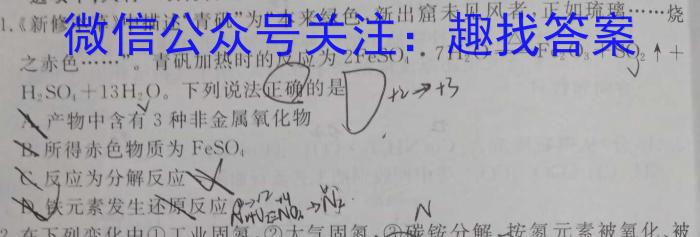 1.《新修
来绿色,新出窟未见风者,正如琉璃……烧
微信公众号关注:趣找答案
之赤色……”。青矾加热时的反应为 2FeSO₄·7H₂O
SO₂↑+
H₂SO₄+13H₂O。下列说法正确的是 D +2→+3
A. 产物中含有 3 种非金属氧化物
B. 所得赤色物质为 FeSO₄
C. 反应为分解反应
D. 铁元素发生还原反应
N
2.在下列变化中①工业固氮,②大气固氮,③碳铵分解,按氮元素被氧化、被